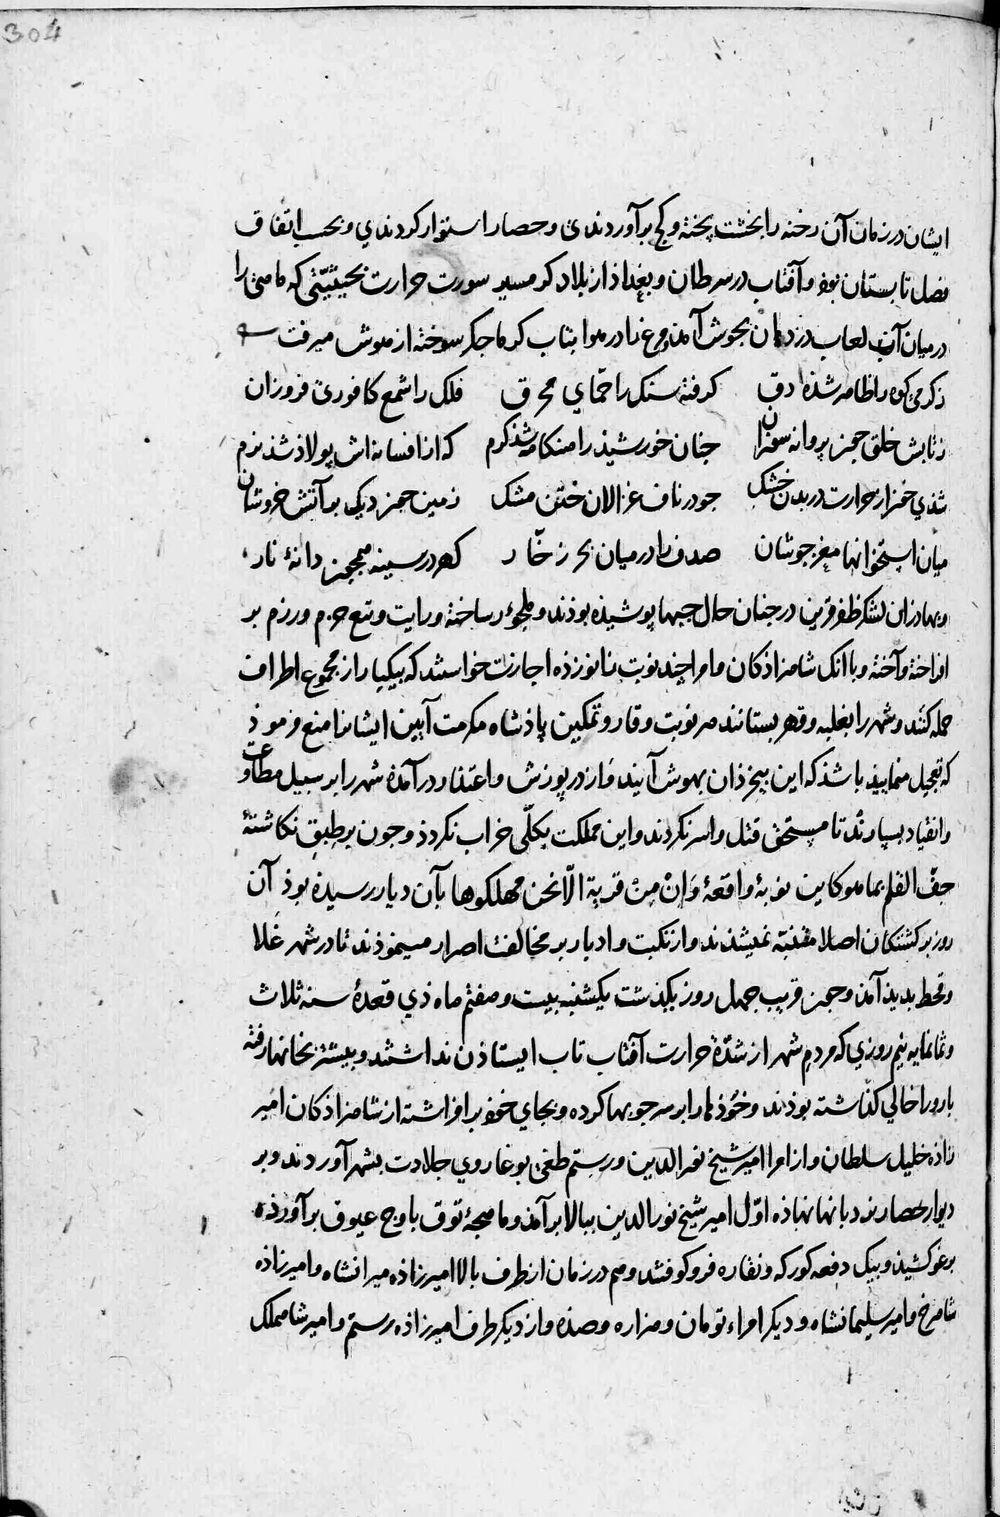 304
ایشان در زمان آن رخنه را بخشت پخته و کچ برآوردندی و حصار استوار کردندی و بحسب اتفاق
فصل تابستان بوذ و آفتاب در سرطان و بغداذ از بلاد کرمسیر سورت حرارت بحیثیّتی که ماهی را
در میان آب لعاب در دهان بجوش آمد و مرغ را در هوا بتاب کرما جکر سوخته از هوش میرفت
ز کرمی کوه را ظاهر شذه دق کرفته سنک را حمّای محرق فلک را شمع کافوری فروزان
ز تابش خلق جون پروانه سوزان جنان خورشیذ را هنکامه شذ کرم که از افسانه اش پولاذ شذ نرم
شذی خون از حرارت در بدن خشک جو در ناف غزالان ختن مشک زمین جون دیک بر آتش خروشان
میان استخوانها مغز جوشان صدف را در میان بحر زخّار کهر در سینه همجون دانهٔ نار
و بهاذران لشکر ظفر قرین در جنان حال جبها پوشیذه بوذند و ملجور ساخته و رایت و تیغ حزم و رزم بر
افراخته و آخته و با آنک شاهزاذکان و امرا چند نوبت زانو زذه اجازت خواستند که بیکبار از مجموع اطراف
حمله کنند و شهر را بغلبه و قهر بستانند هر نوبت وقار و تمکین پاذشاه مکرمت آیین ایشانرا منع فرموذ
که تعجیل منمایید باشذ که این بیخرذان بهوش آیند و از در پوزش و اعتذار درآمذه شهر را بر سبیل مطاوعت
و انقیاد بسپارند تا مستحق قتل و اسر نکردند و این مملکت بکلّی خراب نکردذ و جون بر طبق نکاشتهٔ
جفّ القلم بما هو کاین نوبهٔ واقعهٔ وَاِنْ مِنْ قریة الّا نحن مهلکوها بآن دیار رسیذه بوذ آن
روز برکشتکان اصلا متنبّه نمیشذند و از نکبت و ادبار بر مخالفت اصرار مینموذند تا در شهر غلا
و قحط بدیذ آمذ و جون قریب جهل روز بکذشت یکشنبه بیست و هفتم ماه ذی قعدهٔ سنه ثلاث
و ثمانمایه نیم روزی که مردم شهر از شدّة حرارت آفتاب تاب ایستاذن نداشتند و بیشتر بخانها رفته
بارو را خالی کذاشته بوذند و خُوذها را بر سر جوبها کرده و بجای خوذ برافراشته از شاهزاذکان امیر
زاذه خلیل سلطان و از امرا امیر شیخ نور الدین و رستم طغی بوغا روی جلادت بشهر آوردند و بر
دیوار حصار نردبانها نهاذه اوّل امیر شیخ نور الدین ببالا برآمذ و ماهجهٔ توق باوج عیوق برآورذه
برغو کشیذ و بیک دفعه کورکه و نقاره فروکوفتند و هم در زمان از طرف بالا امیرزاذه میرانشاه و امیرزاذه
شاهرخ و امیر سلیمانشاه و دیکر امراء تومان و هزاره و صذه و از دیکر طرف امیرزاذه رستم و امیر شاهملک